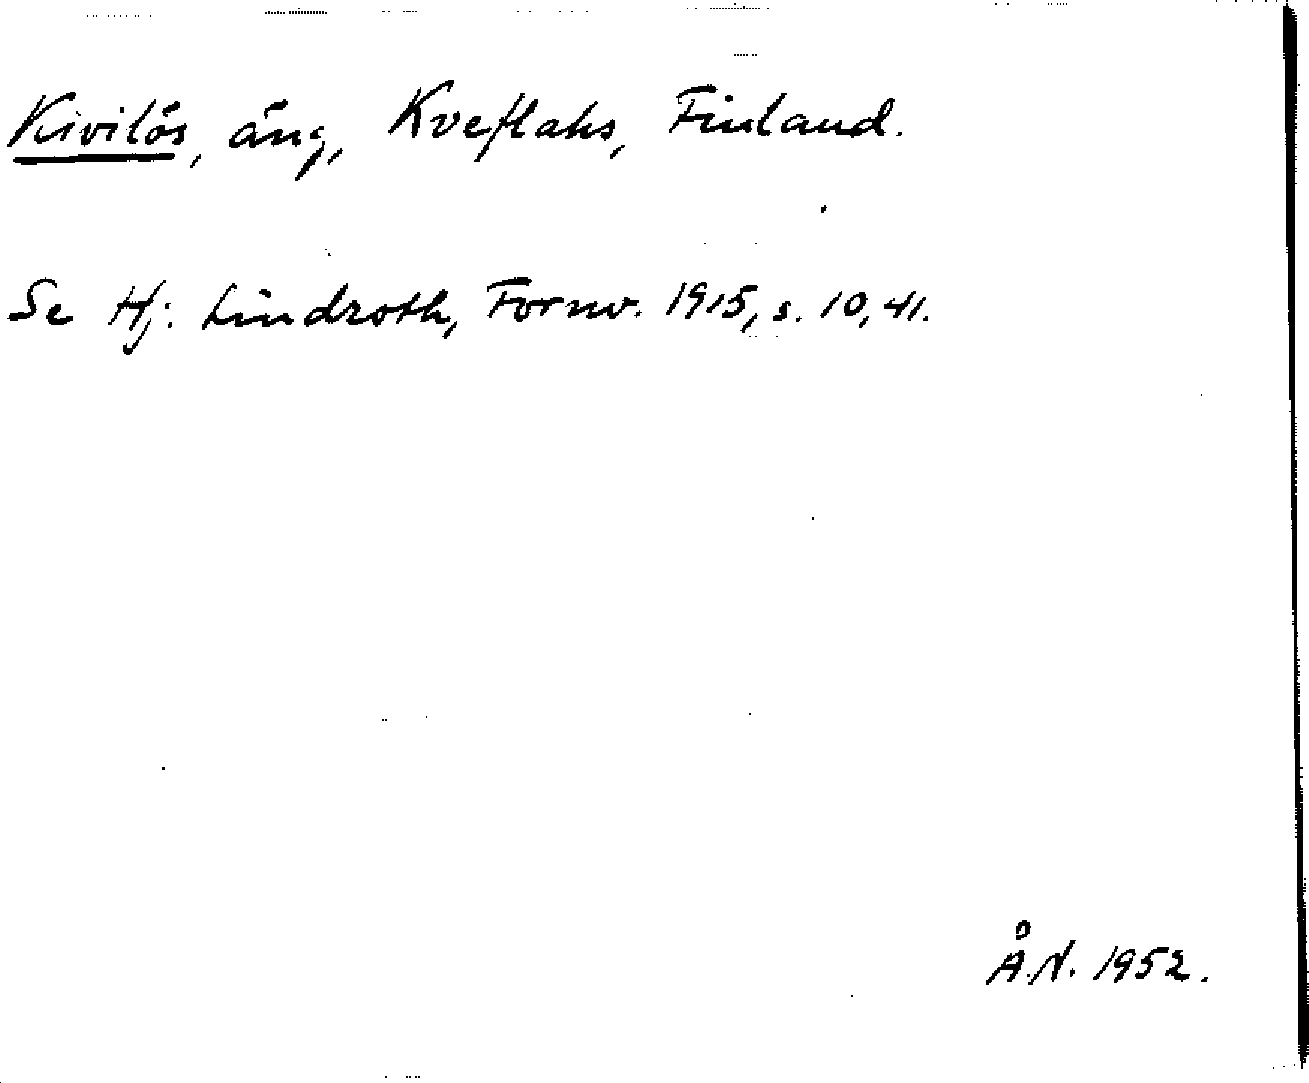 Kivilös, äng, Kveflaks, Finland.
Se Hj. Lindroth, Fornv. 1915, s. 10, 41.
Å.N. 1952.